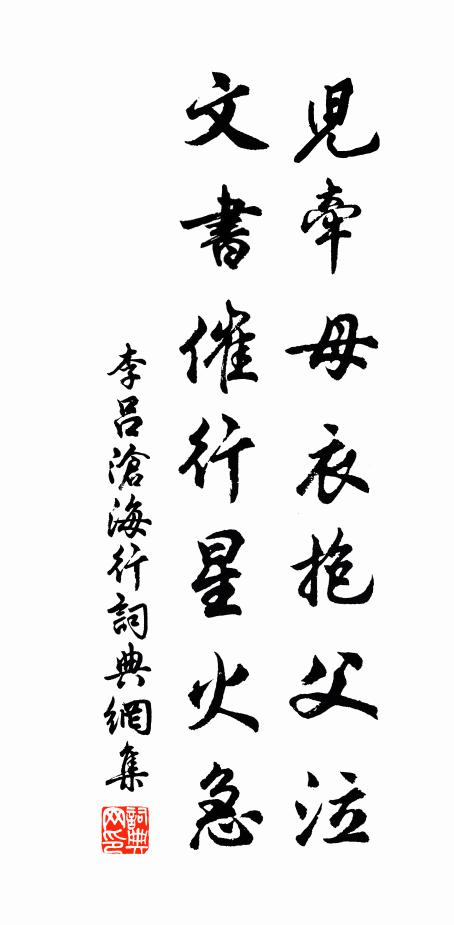 兒牽母衣抱父泣
文書催行星火急
李呂滄海行詞典網集
詞典网印